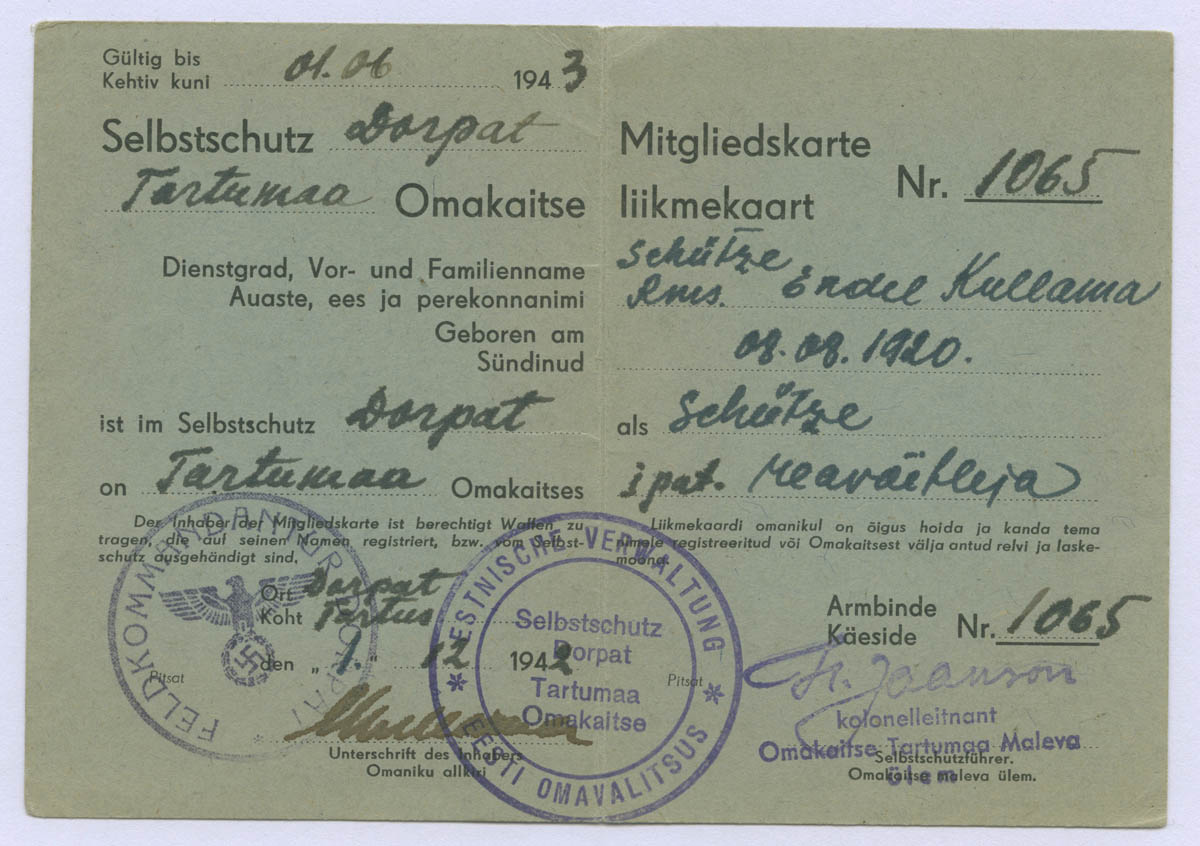 Gültig bis
Kehtiv kuni 01.06 1943
Selbstschutz Dorpat
Tartumaa Omakaitse
Mitgliedskarte
liikmekaart
Nr. 1065
Dienstgrad, Vor- und Familienname
Auaste, ees ja perekonnanimi
Schütze
Rms. Endel Kullama
Geboren am
Sündinud
08.08.1920.
ist im Selbstschutz Dorpat
als Schütze
on Tartumaa Omakaitses
i pat. reavõitleja
Der Inhaber der Mitgliedskarte ist berechtigt Waffen zu
tragen, die auf seinen Namen registriert, bzw. vom Selbst-
schutz ausgehändigt sind.
Liikmekaardi omanikul on õigus hoida ja kanda tema
nimele registreeritud või Omakaitsest välja antud relvi ja laske-
moona.
FELDKOMMANDANTUR DORPAT
Ort Dorpat
Koht Tartus
den „1.“ 12 1942
Pitsat
Unterschrift des Inhabers
Omaniku allkiri
ESTNISCHE VERWALTUNG
Selbstschutz
Dorpat
Tartumaa
Omakaitse
EESTI OMAVALITSUS
Pitsat
Armbinde
Käeside
Nr. 1065
Jaanson
kolonelleitnant
Omakaitse Tartumaa Maleva
ülem
Selbstschutzführer.
Omakaitse maleva ülem.